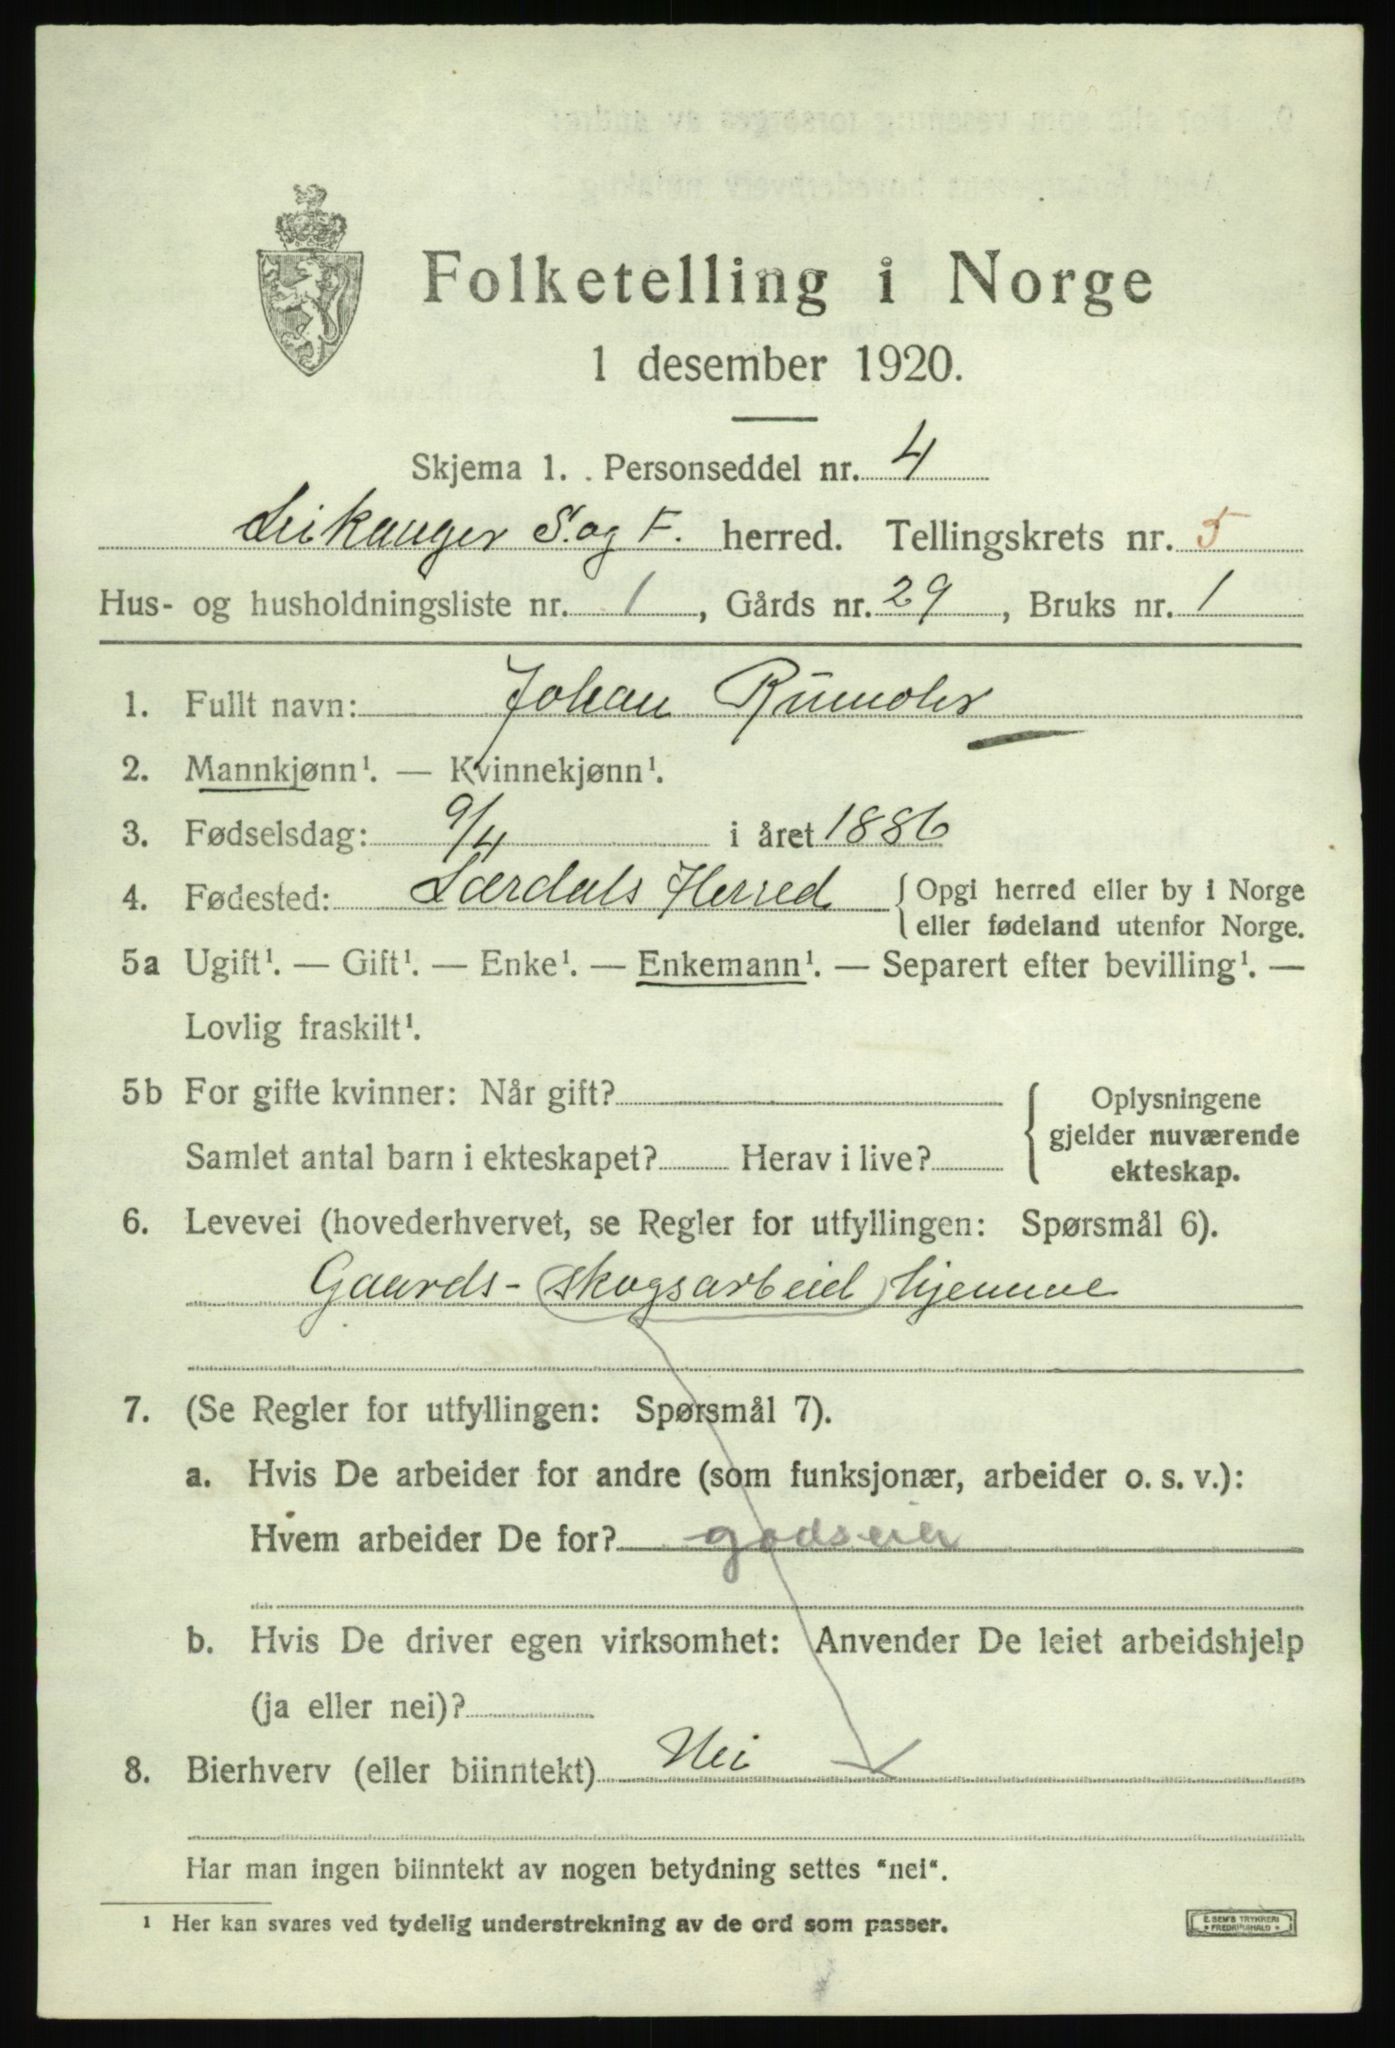 Folketelling i Norge
1 desember 1920.
Skjema 1. Personseddel nr. 4
Leikanger S. og F. herred. Tellingskrets nr. 5
Hus- og husholdningsliste nr. 1, Gårds nr. 29, Bruks nr. 1
1. Fullt navn: Johan Rumohr
2. Mannkjønn¹. — Kvinnekjønn¹.
3. Fødselsdag: 9/4 i året 1886
4. Fødested: Lærdals Herred { Opgi herred eller by i Norge
eller fødeland utenfor Norge.
5a Ugift¹. — Gift¹. — Enke¹. — Enkemann¹. — Separert efter bevilling¹. —
Lovlig fraskilt¹.
5b For gifte kvinner: Når gift? { Oplysningene
gjelder nuværende
Samlet antal barn i ekteskapet? Herav i live? ekteskap.
6. Levevei (hovederhvervet, se Regler for utfyllingen: Spørsmål 6).
Gaards- (skogsarbeid) hjemme
7. (Se Regler for utfyllingen: Spørsmål 7).
a. Hvis De arbeider for andre (som funksjonær, arbeider o. s. v.):
Hvem arbeider De for? godseier
b. Hvis De driver egen virksomhet: Anvender De leiet arbeidshjelp
(ja eller nei)?
8. Bierhverv (eller biinntekt) Nei
Har man ingen biinntekt av nogen betydning settes "nei".
¹ Her kan svares ved tydelig understrekning av de ord som passer.
E. SEM'S TRYKKERI
FREDRIKSHALD